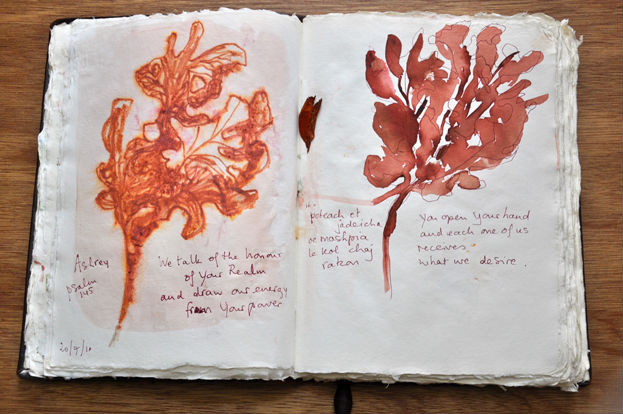 Ashrey
psalm
145
We talk of the honour
of Your Realm
and draw our energy
from Your power
20/9/10
poteach et
jadeicha
oe mashpia
le kol chaj
ratzon
You open Your hand
and each one of us
receives
what we desire.